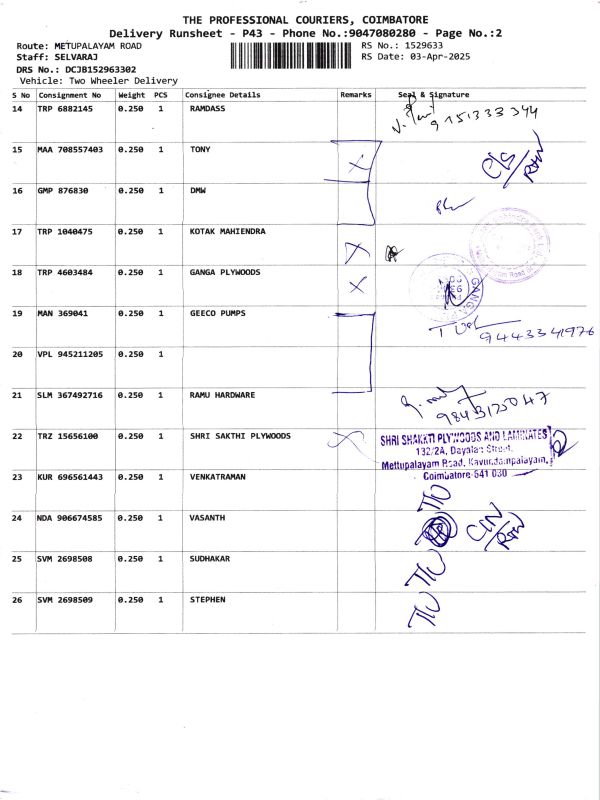 THE PROFESSIONAL COURIERS, COIMBATORE
Delivery Runsheet - P43 - Phone No.:9047080280 - Page No.:2
Route: METUPALAYAM ROAD
Staff: SELVARAJ
DRS No.: DCJB152963302
Vehicle: Two Wheeler Delivery
RS No.: 1529633
RS Date: 03-Apr-2025
S No Consignment No Weight PCS Consignee Details Remarks Seal & Signature
14 TRP 6882145 0.250 1 RAMDASS
9151333344
15 MAA 708557403 0.250 1 TONY
16 GMP 876830 0.250 1 DMW
17 TRP 1040475 0.250 1 KOTAK MAHIENDRA
18 TRP 4603484 0.250 1 GANGA PLYWOODS
19 MAN 369041 0.250 1 GEECO PUMPS
9443341976
20 VPL 945211205 0.250 1
21 SLM 367492716 0.250 1 RAMU HARDWARE
9843125047
22 TRZ 15656100 0.250 1 SHRI SAKTHI PLYWOODS
SHRI SHAKKTI PLYWOODS AND LAMINATES
132/2A, Dayalan Street,
Mettupalayam Road, Kavundampalayam,
Coimbatore-641 030
23 KUR 696561443 0.250 1 VENKATRAMAN
24 NDA 906674585 0.250 1 VASANTH
25 SVM 2698508 0.250 1 SUDHAKAR
26 SVM 2698509 0.250 1 STEPHEN